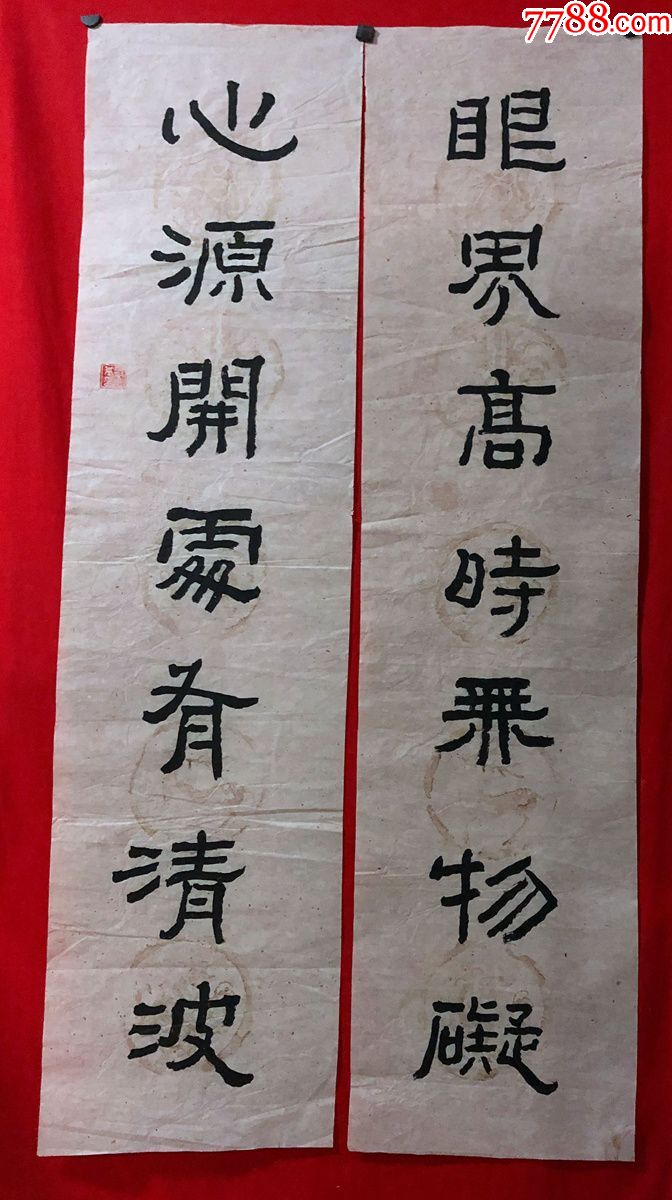 7788.com
眼界高時無物礙
心源開處有清波